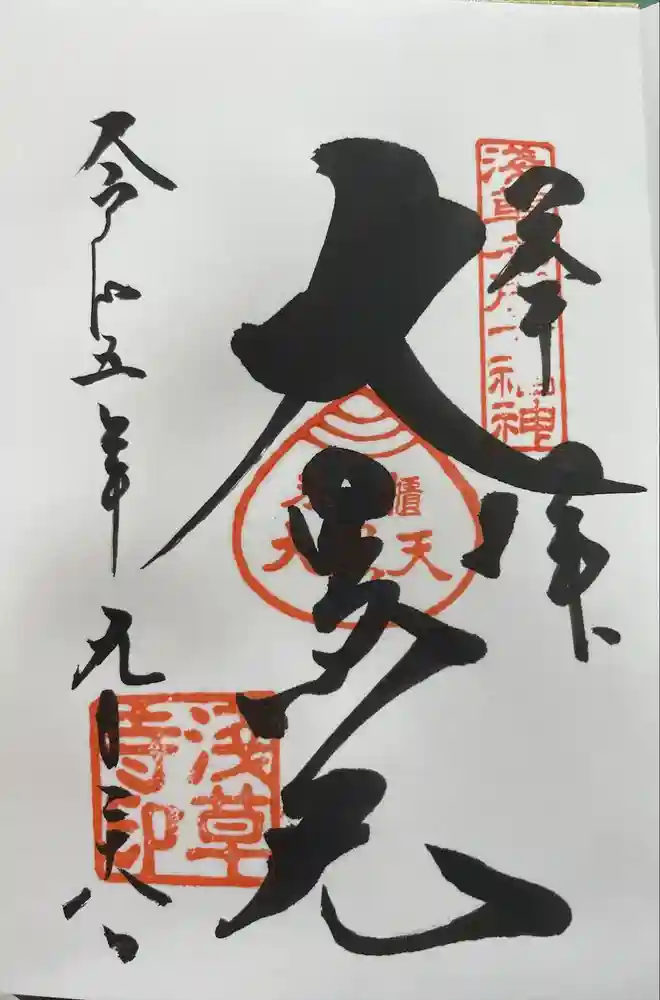 奉拝
浅草名所七福神
大黒天
米櫃
大黒天
令和五年九月二十八日
浅草
寺印